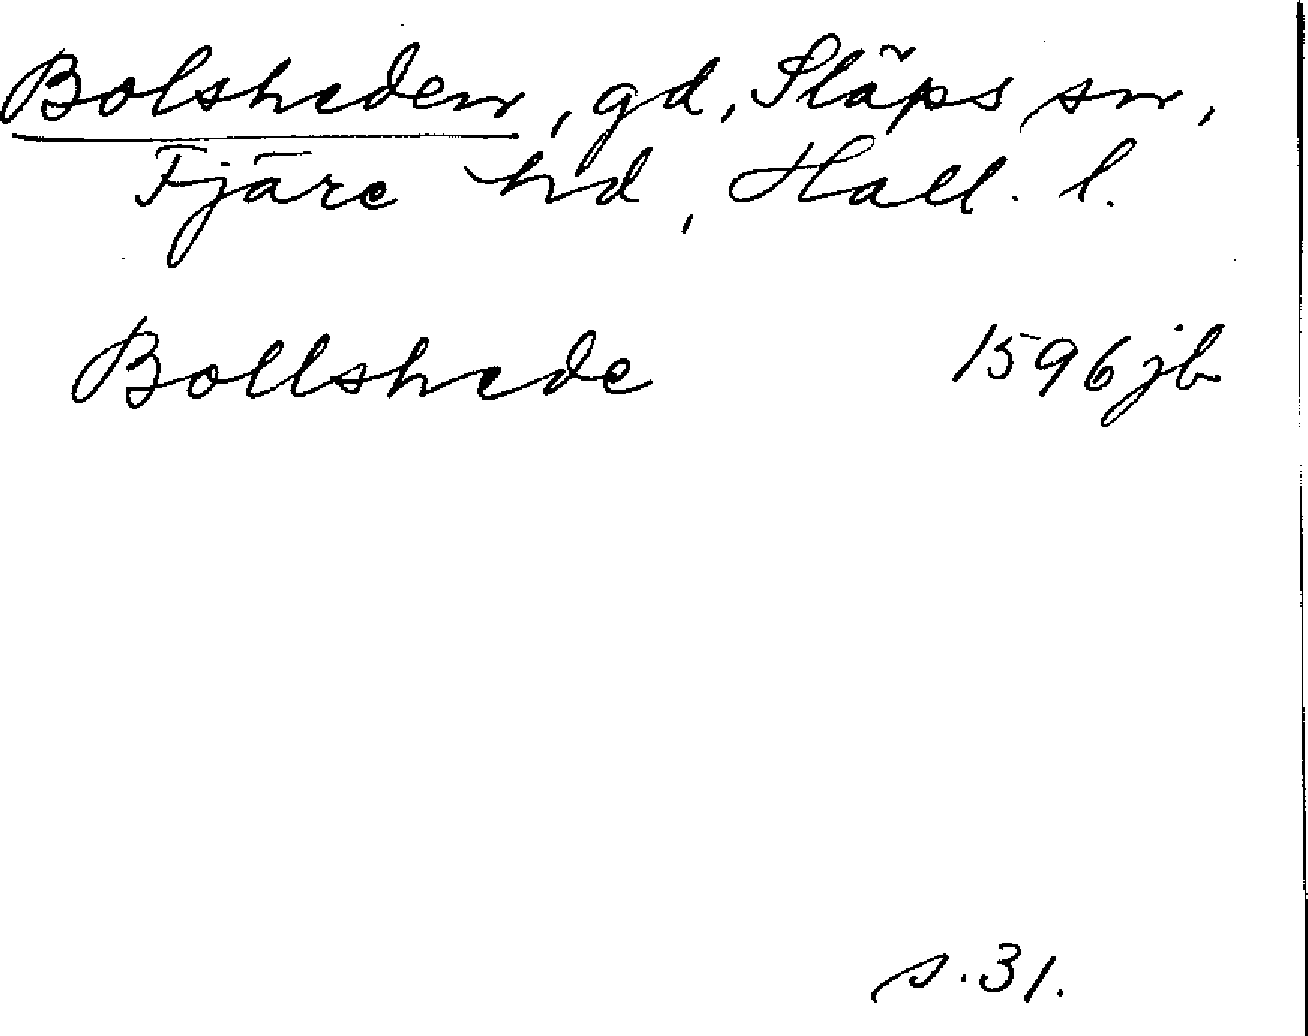 Bolsheden, gd, Släps sn,
Fjäre hd, Hall. l.
Bollshede 1596 jb
s. 31.